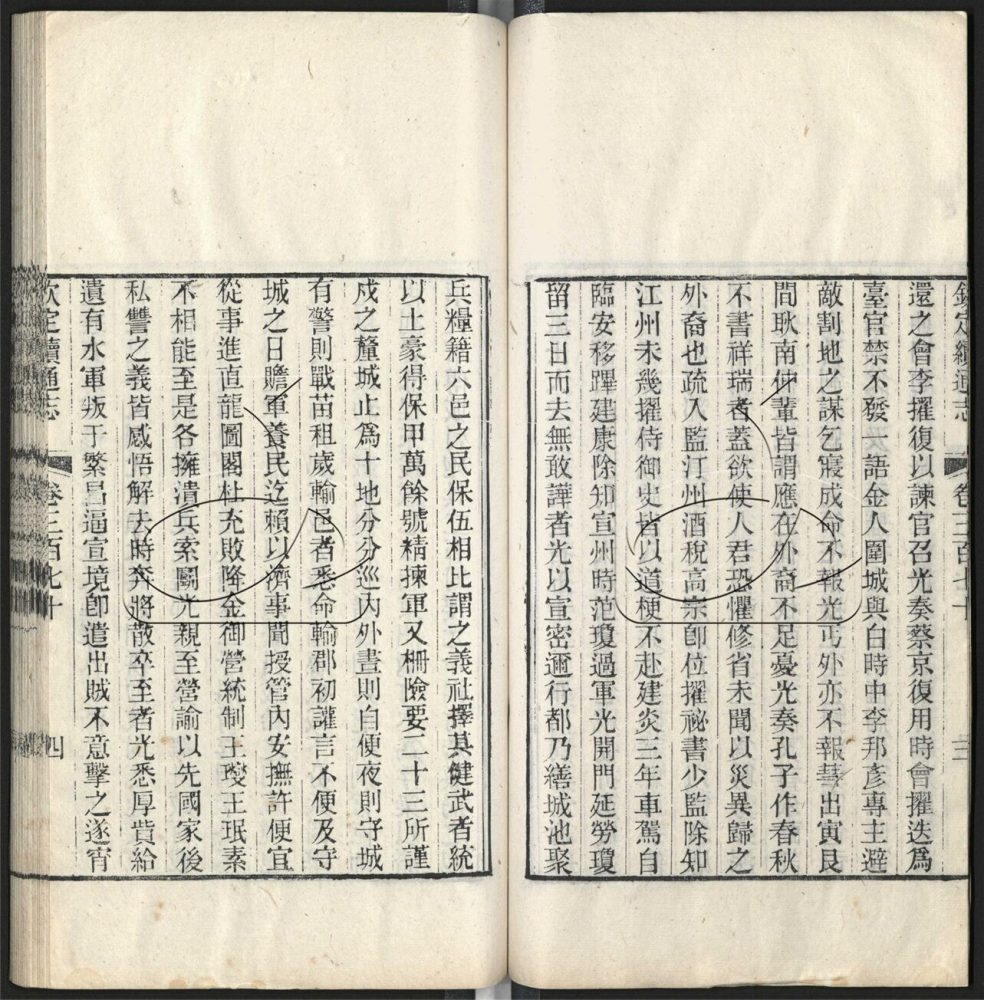 欽定續通志　卷三百七十　三
還之會李擢復以諫官召光奏蔡京復用時會擢迭爲
臺官禁不發一語金人圍城與白時中李邦彥專主避
敵割地之謀乞寢成命不報光丐外亦不報彗出寅艮
間耿南仲輩皆謂應在外裔不足憂光奏孔子作春秋
不書祥瑞者蓋欲使人君恐懼修省未聞以災異歸之
外裔也疏入監汀州酒稅高宗卽位擢祕書少監除知
江州未幾擢侍御史皆以道梗不赴建炎三年車駕自
臨安移蹕建康除知宣州時范瓊過軍光開門延勞瓊
留三日而去無敢譁者光以宣密邇行都乃繕城池聚
兵糧籍六邑之民保伍相比謂之義社擇其健武者統
以土豪得保甲萬餘號精揀軍又柵險要二十三所謹
戍之釐城止爲十地分分巡內外晝則自便夜則守城
有警則戰苗租歲輸邑者悉命輸郡初讙言不便及守
城之日贍軍養民迄賴以濟事聞授管內安撫許便宜
從事進直龍圖閣杜充敗降金御營統制王𤫉王珉素
不相能至是各擁潰兵索鬭光親至營諭以先國家後
私讐之義皆感悟解去時奔將散卒至者光悉厚貲給
遺有水軍叛于繁昌逼宣境卽遣出賊不意擊之遂宵
欽定續通志　卷三百七十　四